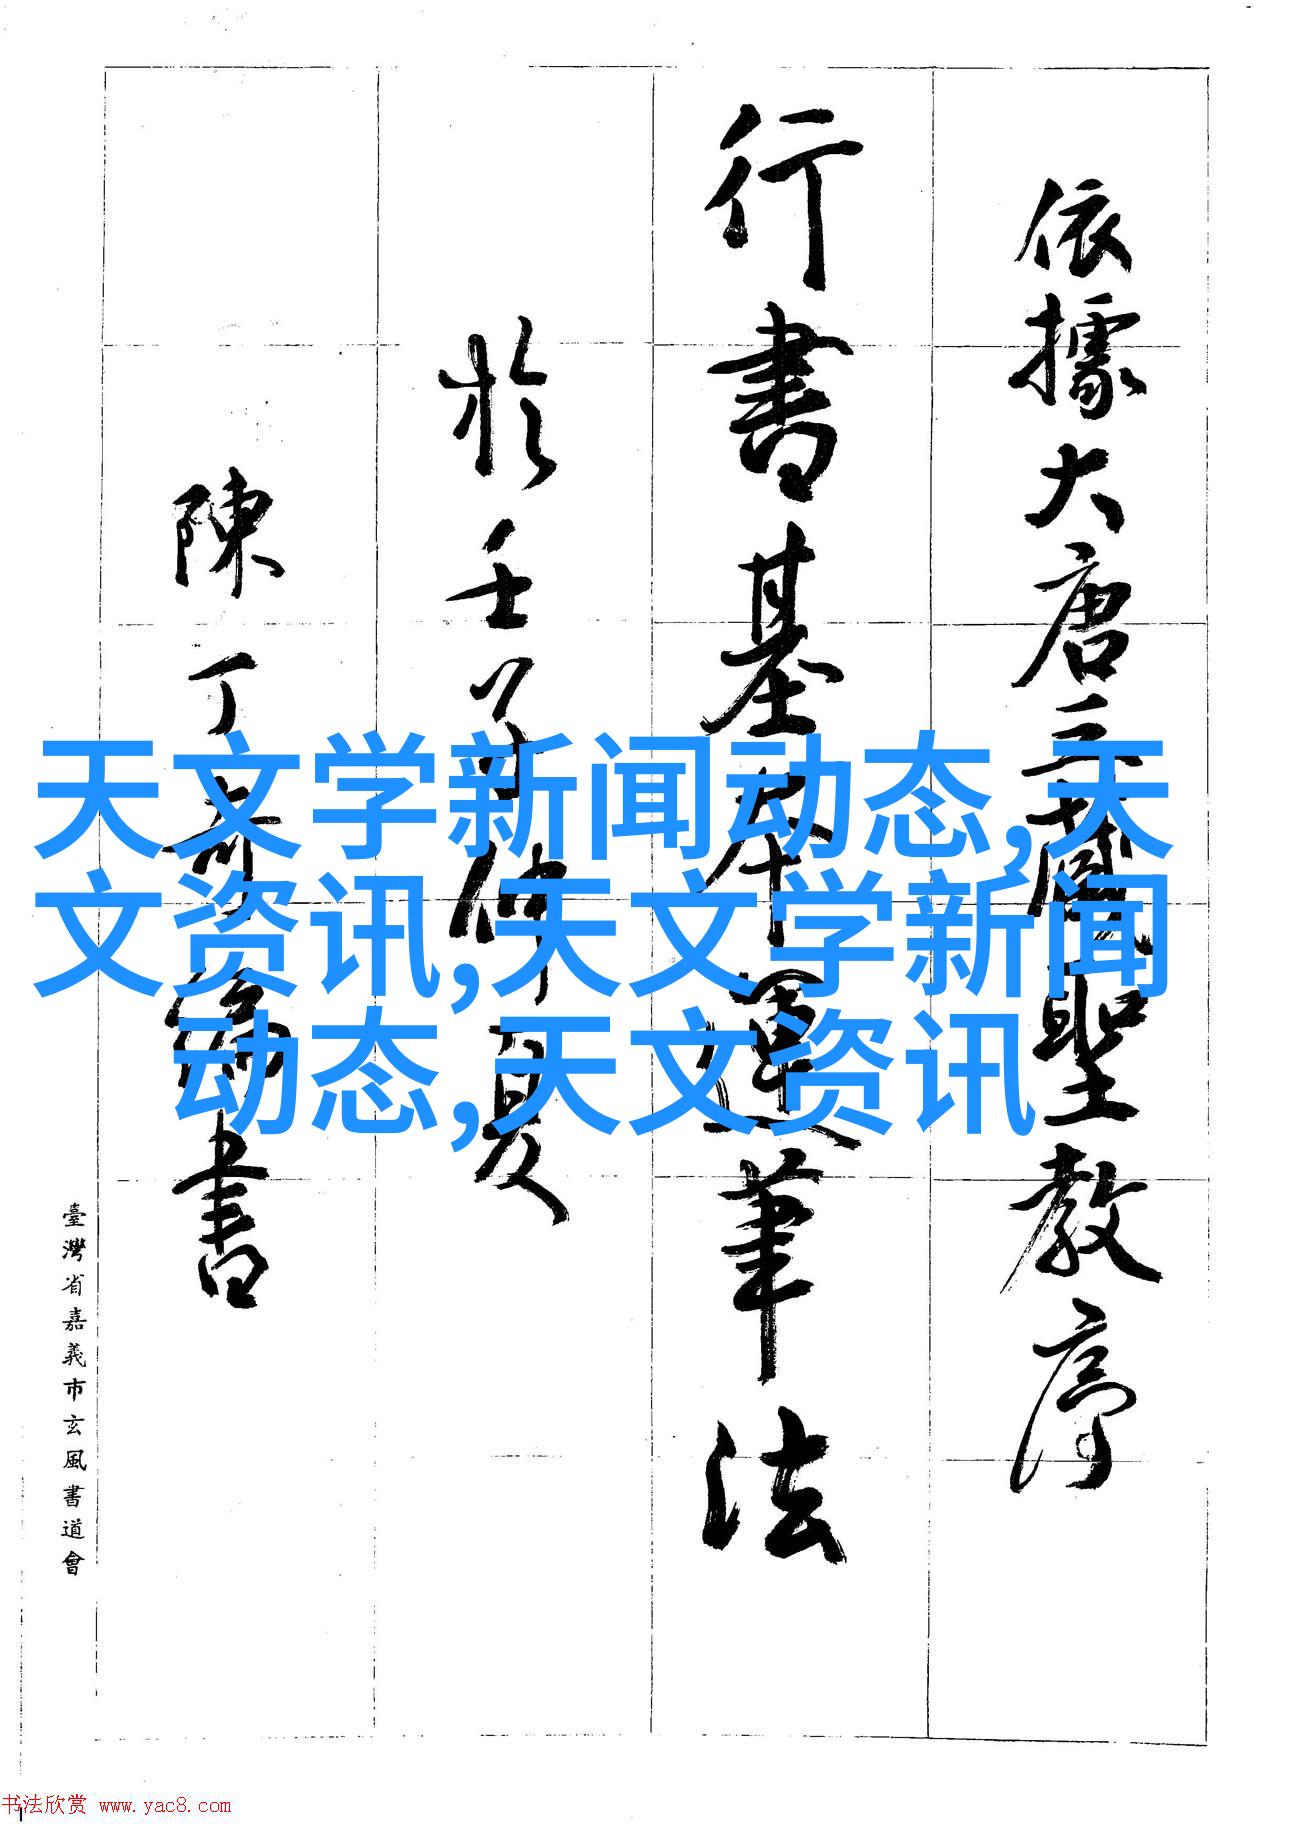 依據大唐三藏聖教序
行書基本運筆法
於壬子仲夏
陳丁奇編書
臺灣省嘉義市玄風書道會
天文学新闻动态,天
文资讯,天文学新闻
动态,天文资讯
书法欣赏 www.yac8.com
1